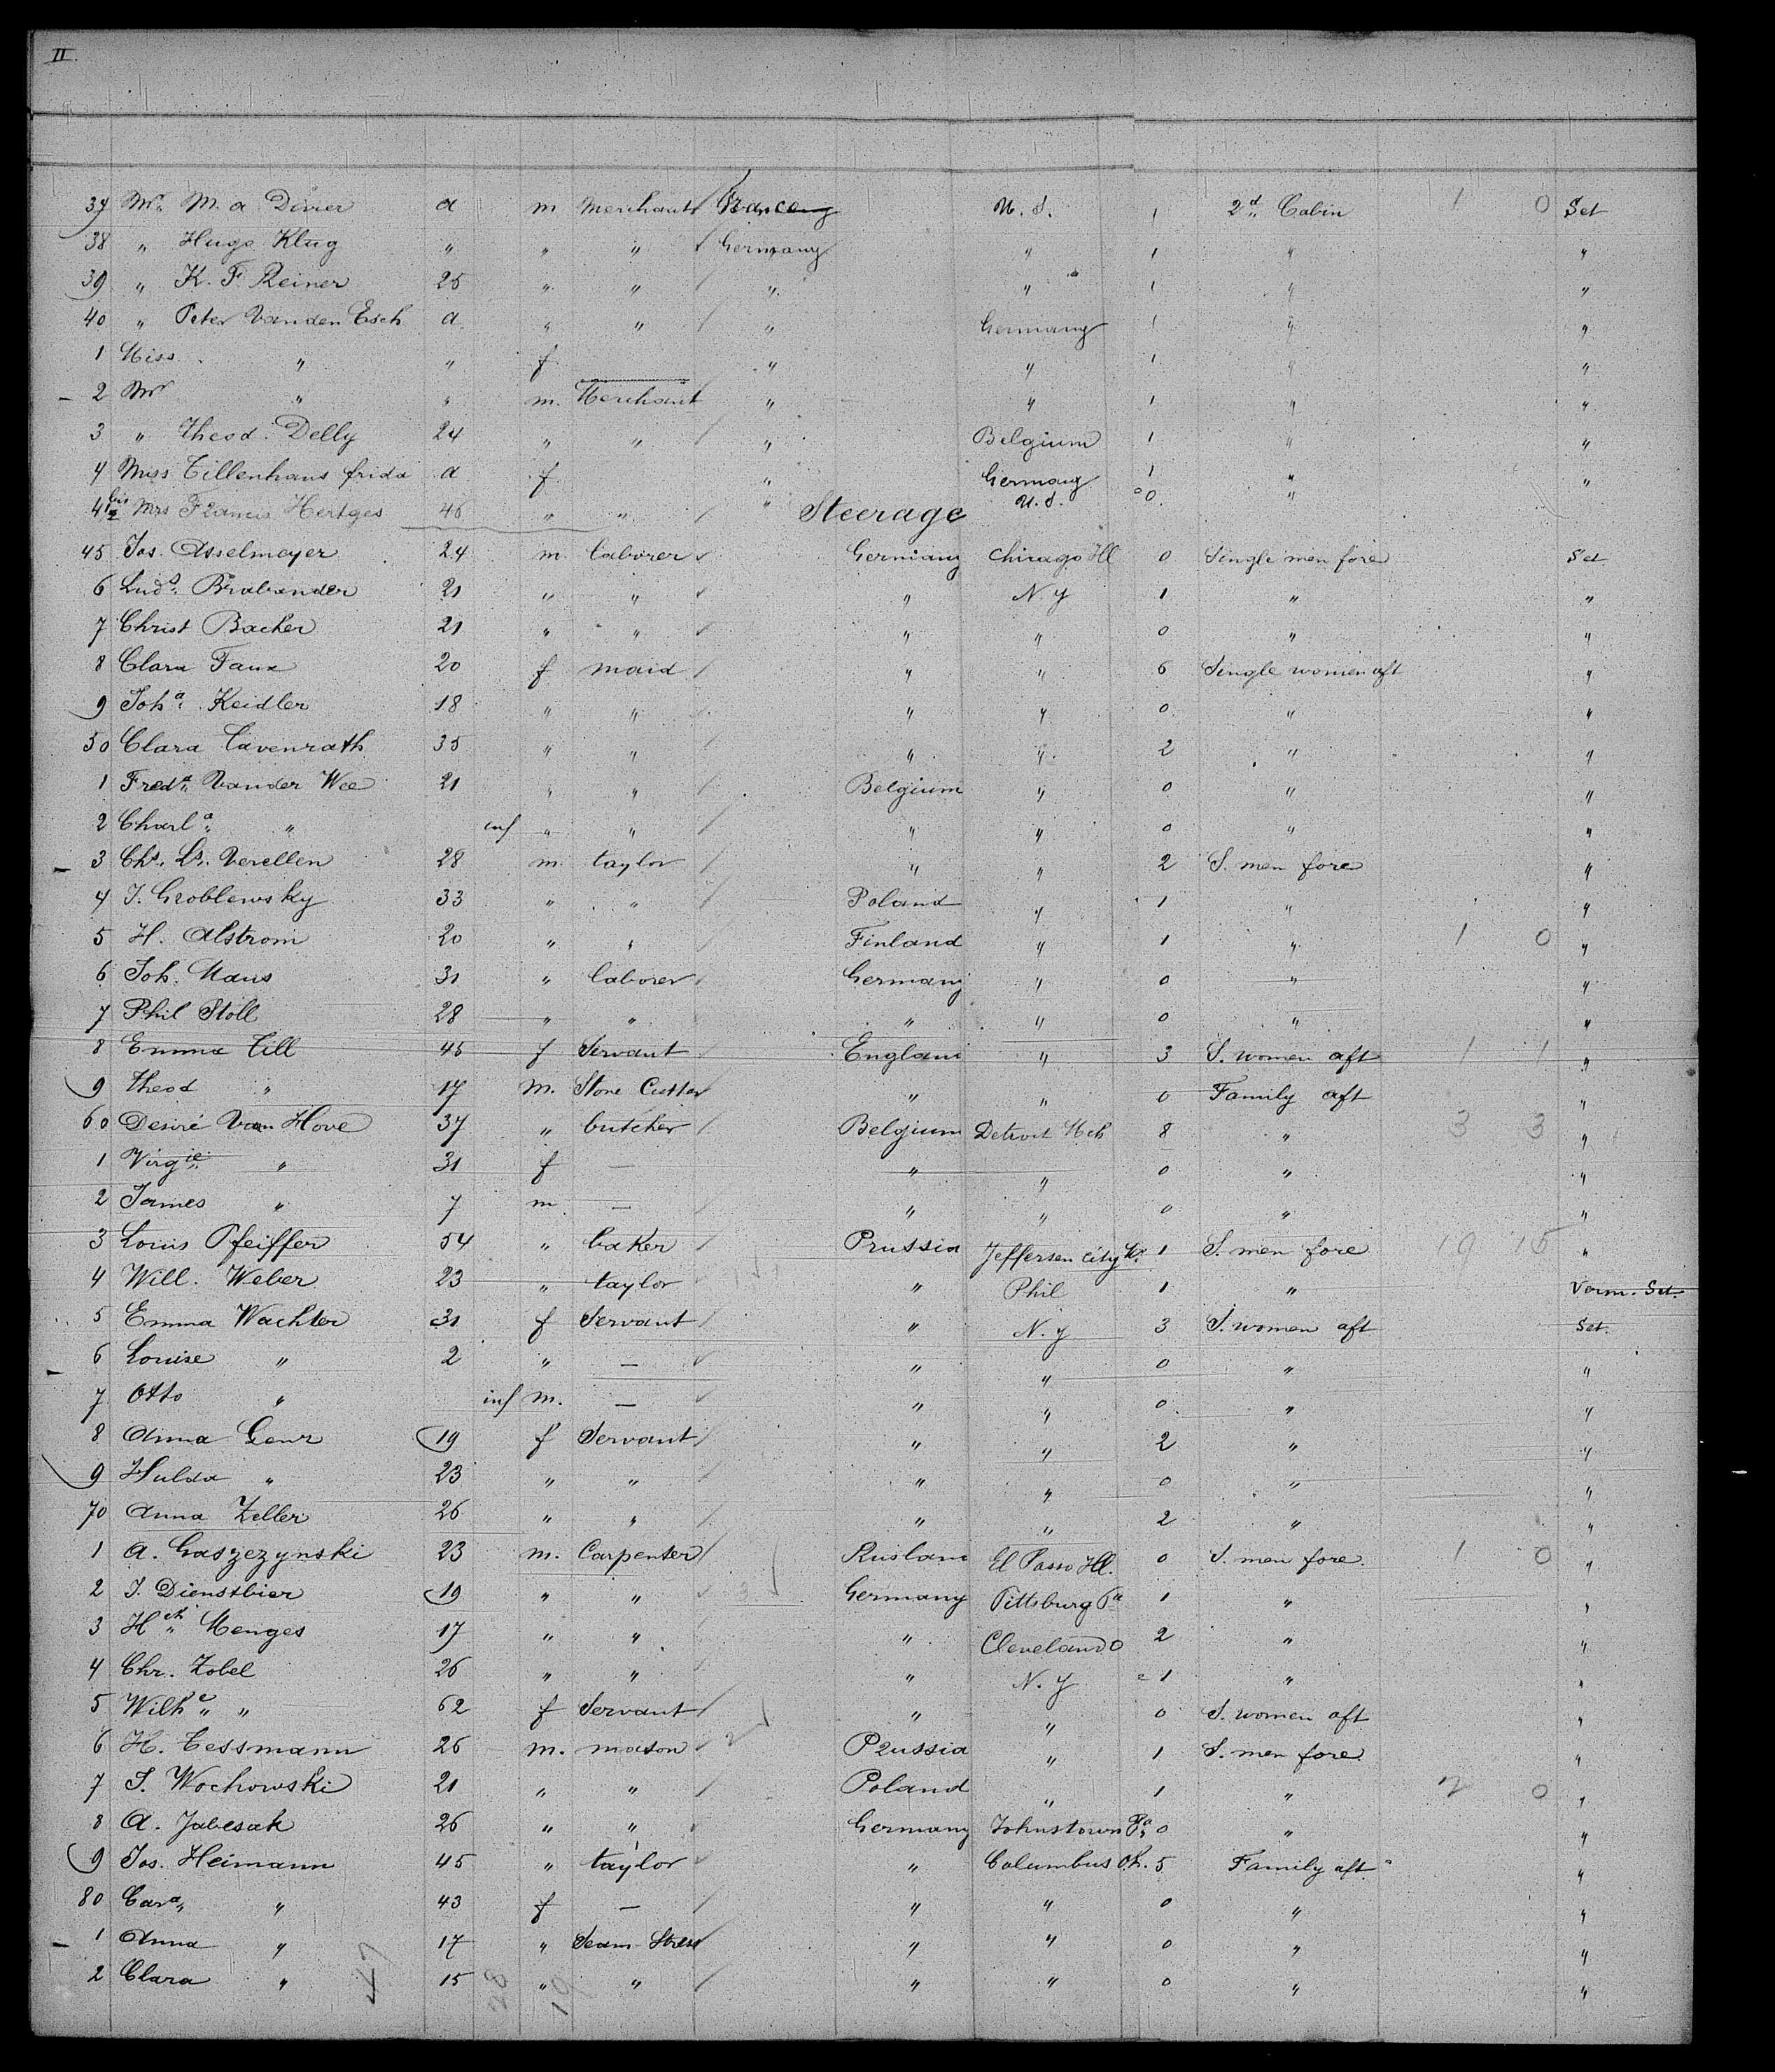 II.
37 Mr. M. a. Divier a m Merchant France U. S. 1 2d Cabin 1 0 Set
38 " Hugo Klug " " " Germany " 1 " "
39 " K. F. Reiner 25 " " " " 1 " "
40 " Peter Vanden Esch a " " " Germany 1 " "
1 Miss " " f " " 1 " "
2 Mr " " m. Merchant " " 1 " "
3 " Theod. Delly 24 " " " Belgium 1 " "
4 Miss Tillenhaus frida a f " Germany 1 " "
44 bis Mrs Hertges 46 " " " U. S. 0 "
Steerage
45 Jos. Asselmeyer 24 m laborer Germany Chicago Ill 0 Single men fore Set
6 Luds. Brabander 21 " " " N. Y 1 " "
7 Christ Backer 21 " " " " 0 " "
8 Clara Faux 20 f maid " " 6 Single women aft "
9 Joha. Keidler 18 " " " " 0 " "
50 Clara Tavenrath 35 " " " " 2 " "
1 Freda. Vander Wee 21 " " Belgium " 0 " "
2 Charla. " inf " " " " 0 " "
3 Chs. Ls. Verellen 28 m. taylor " " 2 S. men fore "
4 J. Groblewsky 33 " " Poland " 1 " "
5 H. Alstrom 20 " " Finland " 1 " 1 0 "
6 Joh. Maus 31 " laborer Germany " 0 " "
7 Phil Stoll 28 " " " " 0 " "
8 Emma Till 45 f Servant England " 3 S. women aft 1 1 "
9 Theod " 17 m. Stone Cutter " " 0 Family aft "
60 Desiré Van Hove 37 " butcher Belgium Detroit Mch 8 " 3 3 "
1 Virgie. " 31 f — " " 0 " "
2 James " 7 m — " " 0 " "
3 Louis Pfeiffer 54 " baker Prussia Jefferson City 1 S. men fore 19 15 "
4 Will. Weber 23 " taylor " Phil 1 " Verm. Set.
5 Emma Wachter 31 f Servant " N. Y 3 S. women aft Set.
6 Louise " 2 " — " " 0 " "
7 Otto " inf m. — " " 0 " "
8 Anna Genz 19 f Servant " " 2 " "
9 Hulda " 23 " " " " 0 " "
70 Anna Zeller 26 " " " " 2 " "
1 A. Gaszezynski 23 m. Carpenter Rusland El Passo Ill. 0 S. men fore. 1 0 "
2 J. Dienstbier 19 " " 3 Germany Pittsburg Pa 1 " "
3 Hch " Menges 17 " " " Cleveland O 2 " "
4 Chr. Zobel 26 " " " N. Y 1 " "
5 Wilhe " " 62 f Servant " " 0 S. women aft "
6 H. Tessmann 26 m. mason 2 Prussia " 1 S. men fore "
7 J. Wochowski 21 " " Poland " 1 " 2 0 "
8 A. Jabesak 26 " " Germany Johnstown Pa 0 " "
9 Jos. Heimann 45 " taylor " Columbus Oh. 5 Family aft "
80 Cara. " 43 f — " " 0 " "
1 Anna " 17 " Seam-Stress " " 0 " "
2 Clara " 15 " " " " 0 " "
47 28 19